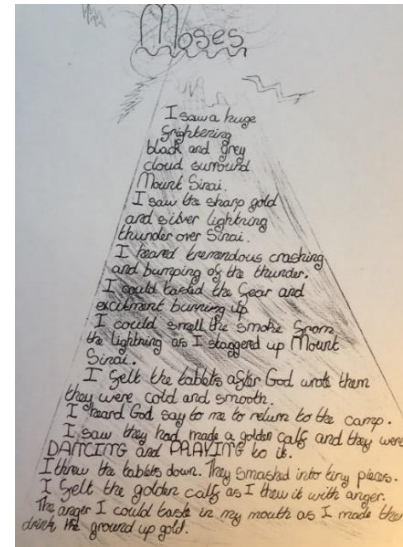 Moses
I saw a huge
frightening
black and grey
cloud surround
Mount Sinai.
I saw the sharp gold
and silver lightning
thunder over Sinai.
I heared tremendous crashing
and bumping of the thunder.
I could tasted the fear and
excitment burning up
I could smell the smoke from
the lightning as I staggered up Mount
Sinai.
I felt the tablets after God wrote them
they were cold and smooth.
I heard God say to me to return to the camp.
I saw they had made a golden calf and they were
DANCING and PRAYING to it.
I threw the tablets down. They smashed into tiny pieces.
I felt the golden calf as I thew it with anger.
The anger I could taste in my mouth as I made the
drink the ground up gold.